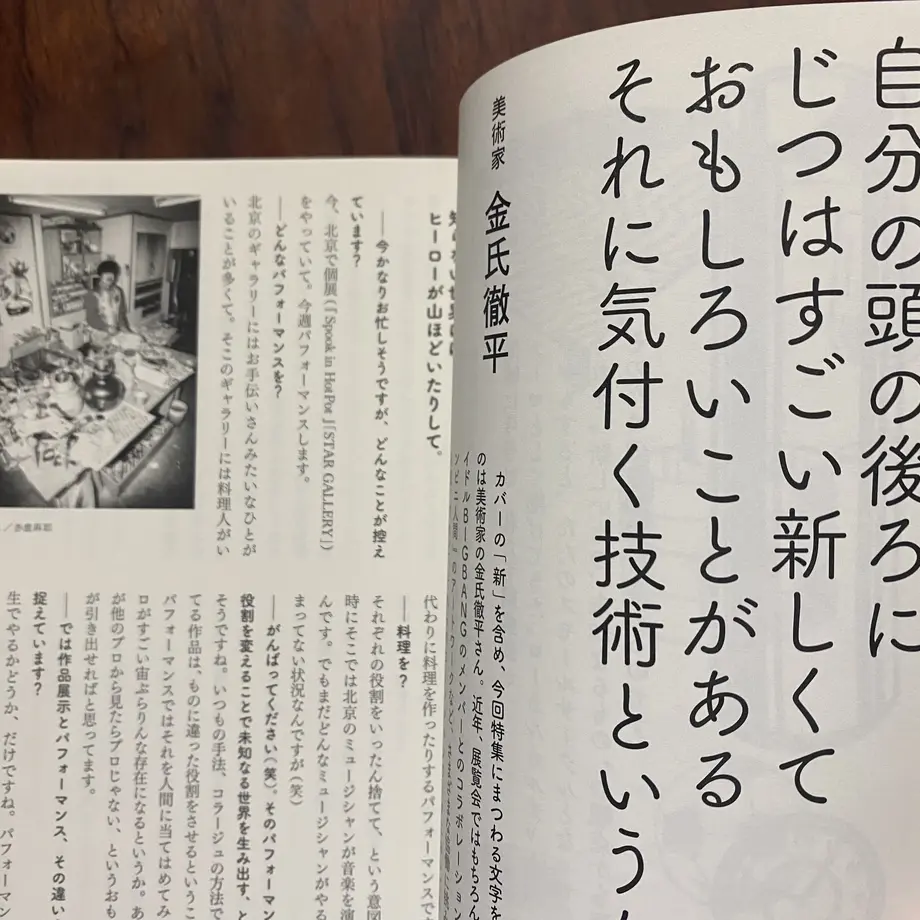 自分の頭の後ろに
じつはすごい新しくて
おもしろいことがある
それに気付く技術という
美術家 金氏徹平
カバーの「新」を含め、今回特集にまつわる文字を
のは美術家の金氏徹平さん。近年、展覧会ではもちろん
イドルBIGBANGのメンバーとのコラボレーション
ヒーローが山ほどいたりして。
――今かなりお忙しそうですが、どんなことが控え
ています?
今、北京で個展(『Spook in HotPot』「STAR GALLERY」)
をやっていて。今週パフォーマンスします。
――どんなパフォーマンスを?
北京のギャラリーにはお手伝いさんみたいなひとが
いることが多くて。そこのギャラリーには料理人がい
代わりに料理を作ったりするパフォーマンスで
――料理を?
それぞれの役割をいったん捨てて、という意図
時にそこでは北京のミュージシャンが音楽を演
んです。でもまだどんなミュージシャンがやる
まってない状況なんですが(笑)
――がんばってください(笑)。そのパフォーマン
役割を変えることで未知なる世界を生み出す、と
そうですね。いつもの手法、コラージュの方法で
てる作品は、ものに違った役割をさせるというこ
パフォーマンスではそれを人間に当てはめてみ
ロがすごい宙ぶらりんな存在になるというか。あ
が他のプロから見たらプロじゃない、というおも
が引き出せればと思ってます。
――では作品展示とパフォーマンス、その違い
捉えています?
生でやるかどうか、だけですね。パフォーマン